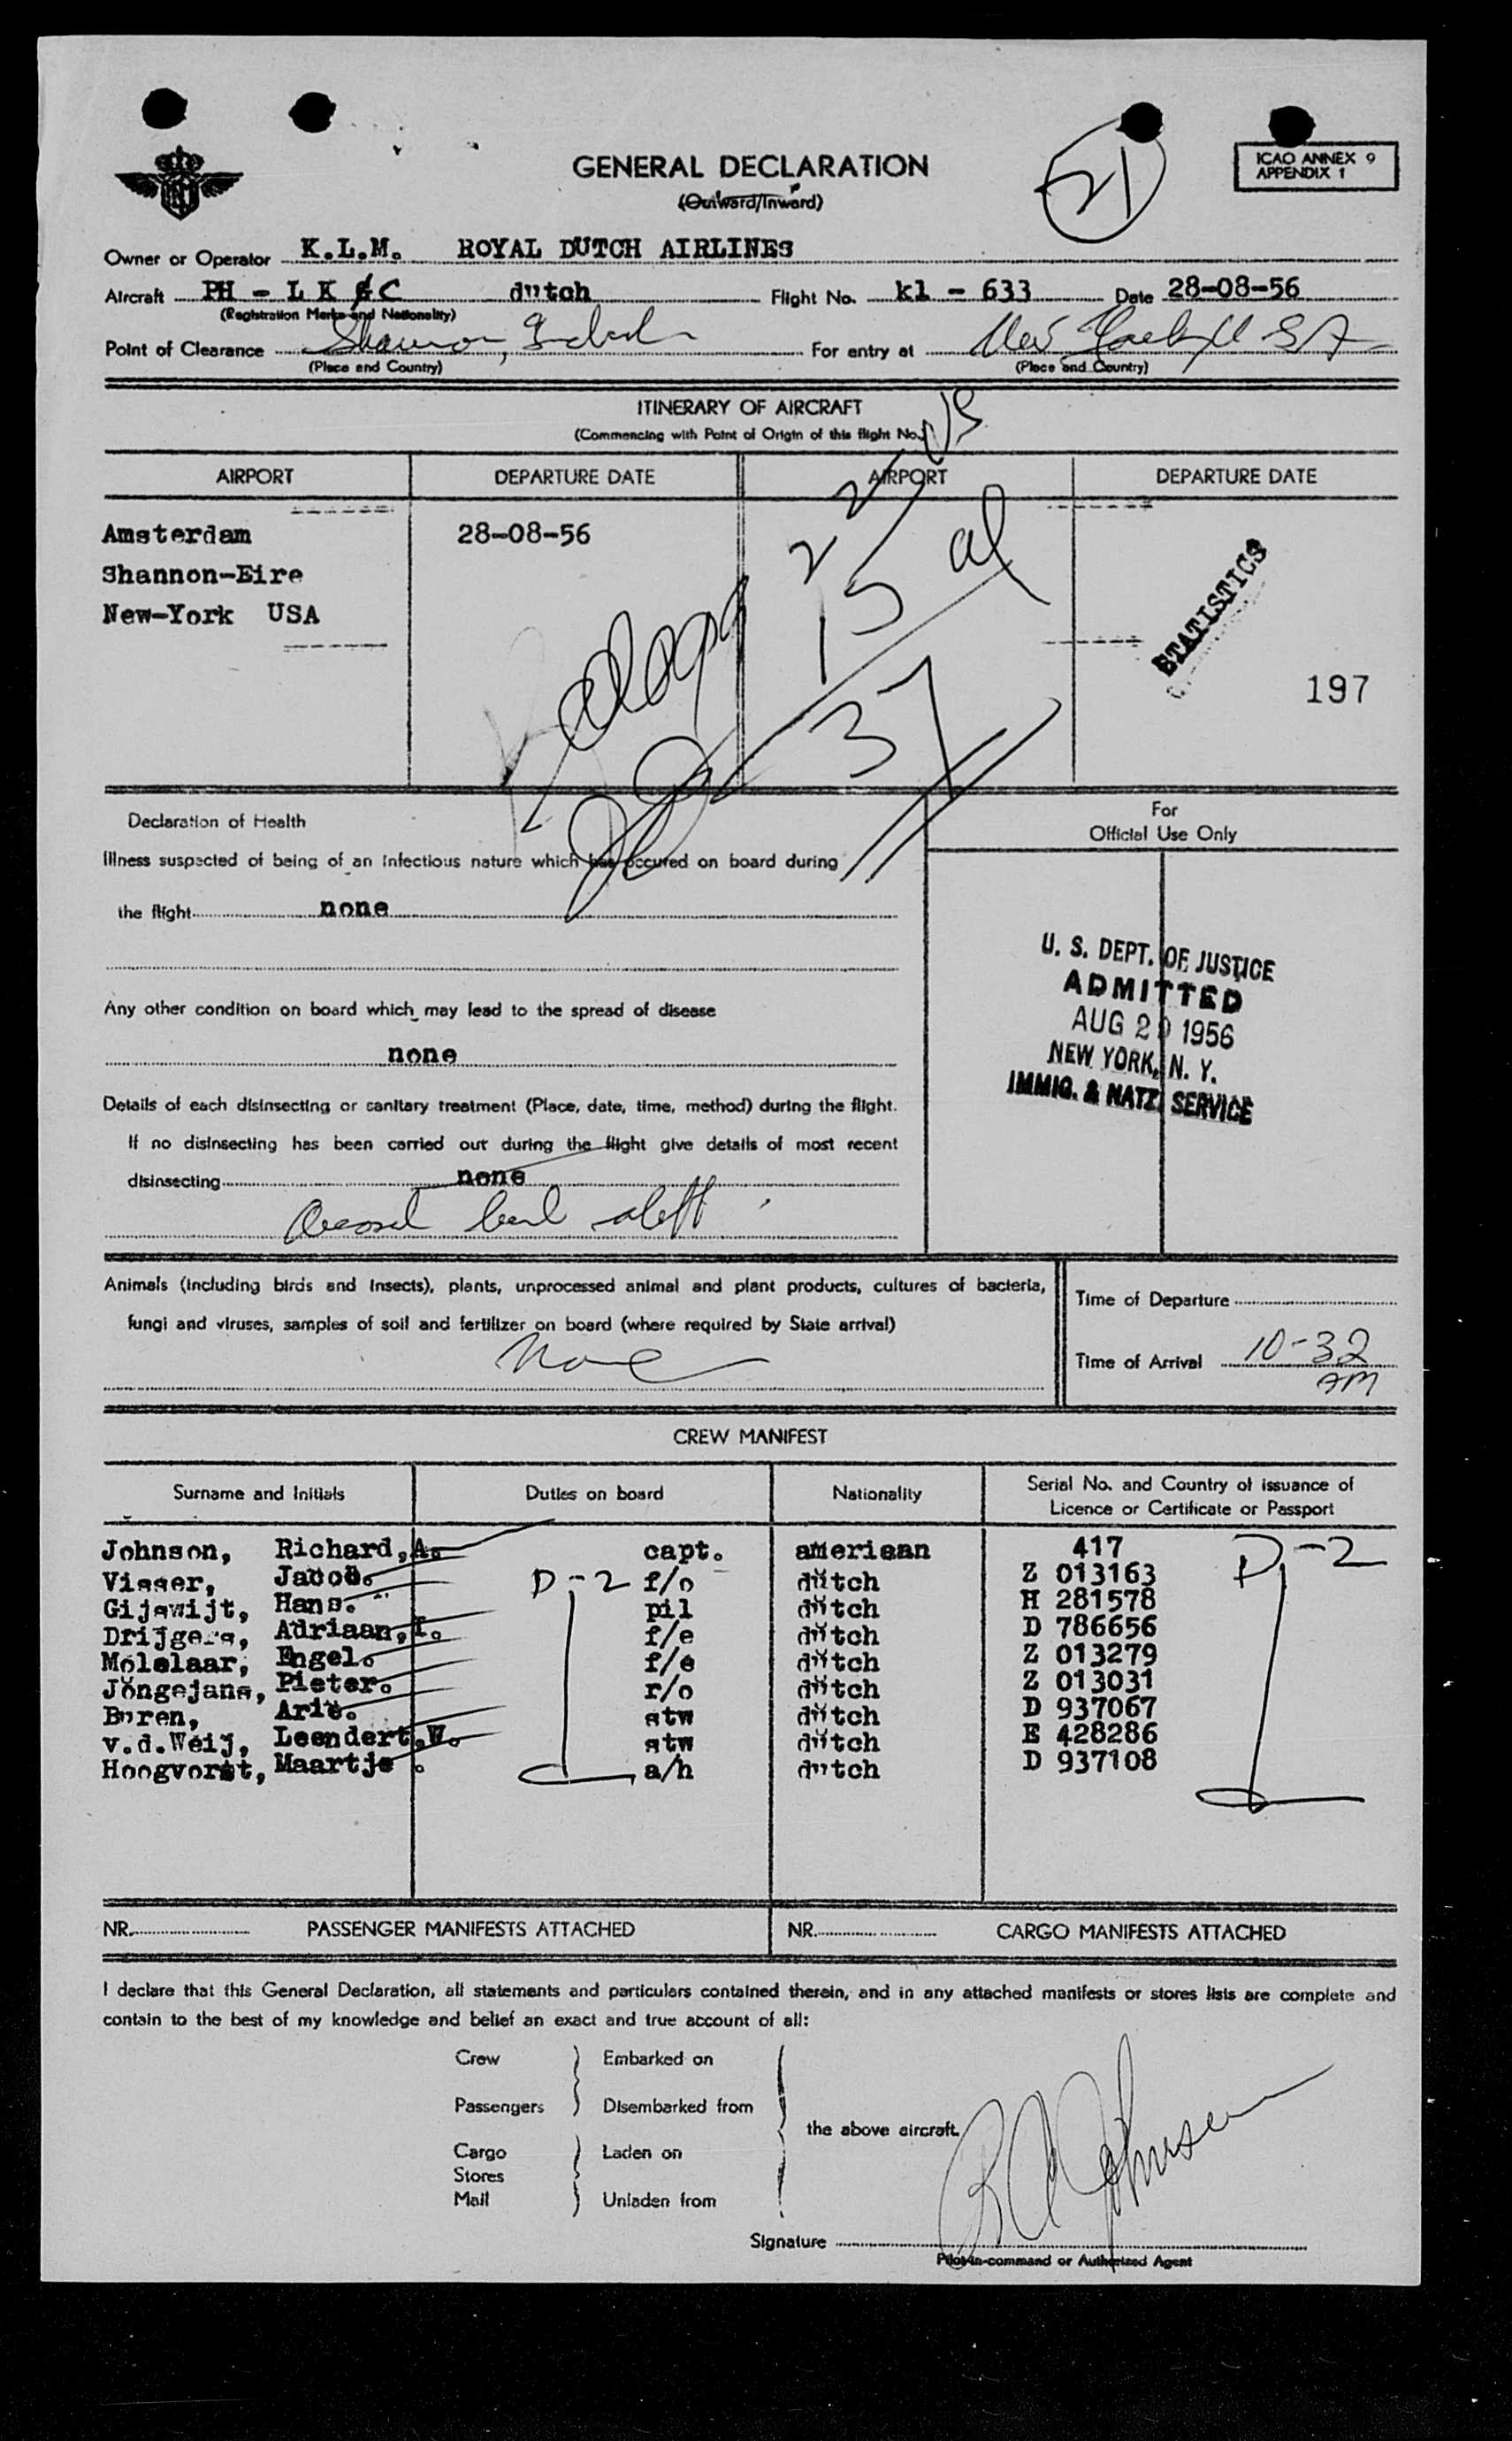 GENERAL DECLARATION
(Outward/Inward)
21
ICAO ANNEX 9
APPENDIX 1
Owner or Operator K.L.M. ROYAL DUTCH AIRLINES
Aircraft PH - L K C dutch Flight No. kl - 633 Date 28-08-56
(Registration Marks and Nationality)
Point of Clearance Shannon, Ireland For entry at New York USA
(Place and Country) (Place and Country)
ITINERARY OF AIRCRAFT
(Commencing with Point of Origin of this flight No.)
AIRPORT DEPARTURE DATE AIRPORT DEPARTURE DATE
Amsterdam 28-08-56
Shannon-Eire
New-York USA
22
15 al
37
STATISTICS
197
Declaration of Health
For
Official Use Only
Illness suspected of being of an infectious nature which has occured on board during
the flight none
Any other condition on board which may lead to the spread of disease
none
U. S. DEPT. OF JUSTICE
ADMITTED
AUG 29 1956
NEW YORK, N. Y.
IMMIG. & NATZ. SERVICE
Details of each disinsecting or sanitary treatment (Place, date, time, method) during the flight.
If no disinsecting has been carried out during the flight give details of most recent
disinsecting none
Animals (including birds and insects), plants, unprocessed animal and plant products, cultures of bacteria,
fungi and viruses, samples of soil and fertilizer on board (where required by State arrival)
None
Time of Departure
Time of Arrival 10-32
AM
CREW MANIFEST
Surname and Initials Duties on board Nationality Serial No. and Country of issuance of
Licence or Certificate or Passport
Johnson, Richard,A. capt. american 417 D-2
Visser, Jacob. D-2 f/o dutch Z 013163
Gijswijt, Hans. pil dutch H 281578
Drijgers, Adriaan,I. f/e dutch D 786656
Molelaar, Engel. f/e dutch Z 013279
Jongejans, Pieter. r/o dutch Z 013031
Buren, Arie. stw dutch D 937067
v.d.Weij, Leendert,W. stw dutch E 428286
Hoogvorst, Maartje . a/h dutch D 937108
NR. PASSENGER MANIFESTS ATTACHED NR. CARGO MANIFESTS ATTACHED
I declare that this General Declaration, all statements and particulars contained therein, and in any attached manifests or stores lists are complete and
contain to the best of my knowledge and belief an exact and true account of all:
Crew Embarked on
Passengers Disembarked from
the above aircraft.
Cargo Laden on
Stores
Mail Unladen from
Signature R A Johnson
Pilot-in-command or Authorized Agent